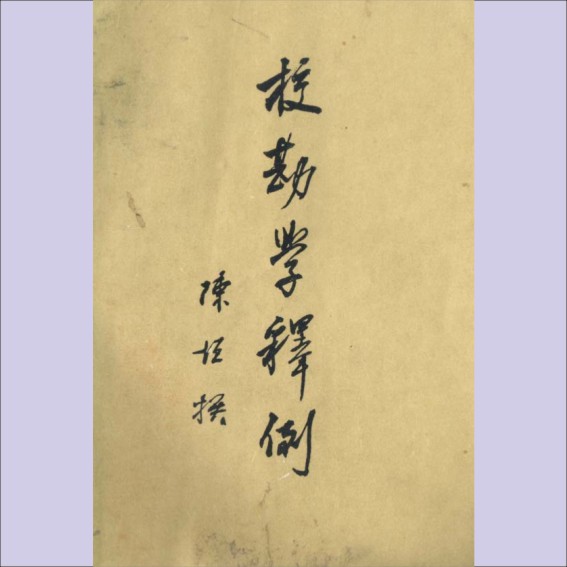 校勘学釋例
陳垣撰